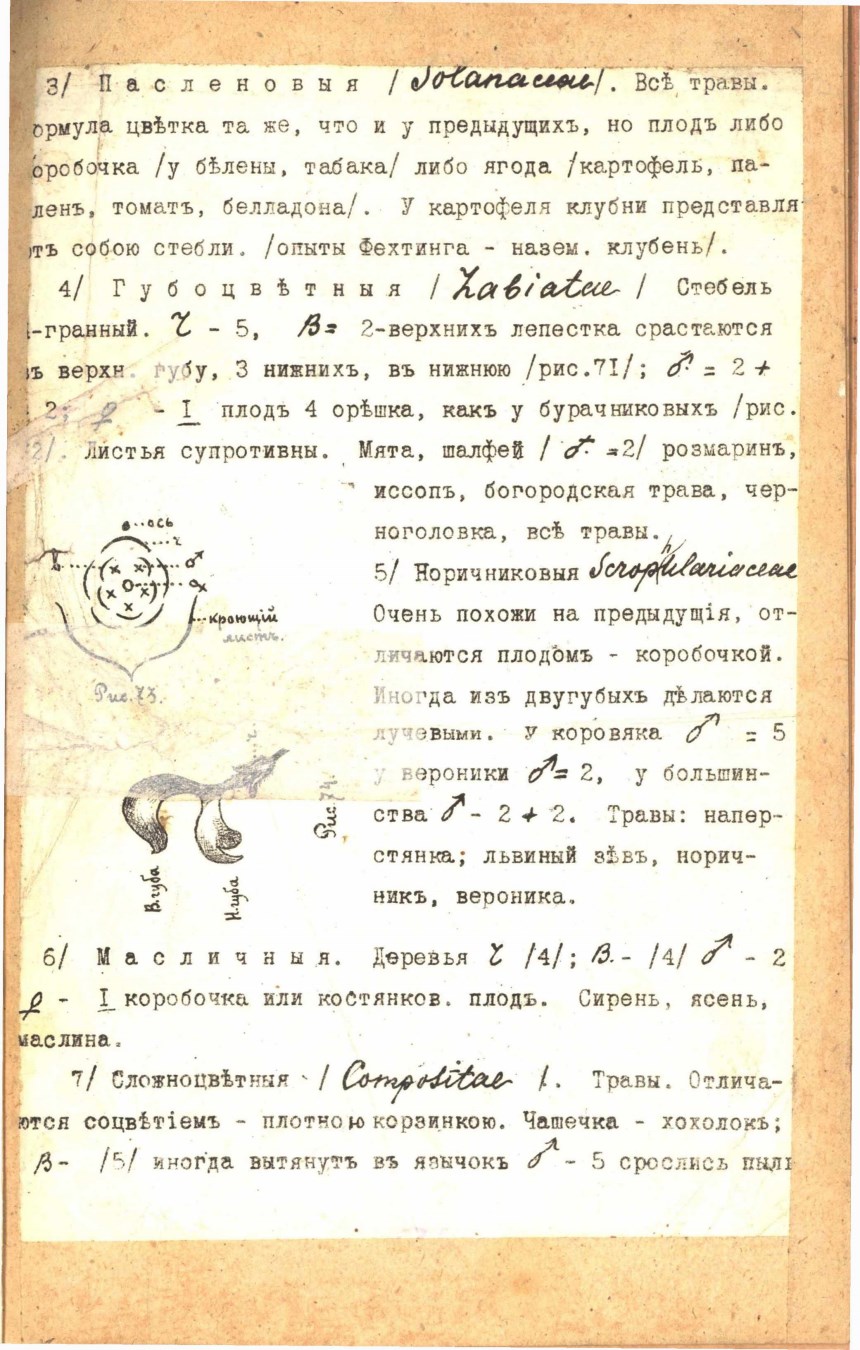 3/ Пасленовыя /Solanaceae/. Всѣ травы.
ормула цвѣтка та же, что и у предыдущихъ, но плодъ либо
оробочка /у бѣлены, табака/ либо ягода /картофель, па-
ленъ, томатъ, белладона/. У картофеля клубни представля
ютъ собою стебли. /опыты Фехтинга - назем. клубень/.
4/ Губоцвѣтныя /Labiatae/ Стебель
-гранный. Ч - 5, В= 2-верхнихъ лепестка срастаются
въ верхн. губу, 3 нижнихъ, въ нижнюю /рис.7I/; ♂ = 2 +
2; ♀ - I плодъ 4 орѣшка, какъ у бурачниковыхъ /рис.
2/. Листья супротивны. Мята, шалфей / ♂ =2/ розмаринъ,
иссопъ, богородская трава, чер-
ноголовка, всѣ травы.
ось
ч
♂
♀
кроющій
листъ.
Рис.73.
5/ Норичниковыя Scrophulariaceae
Очень похожи на предыдущія, от-
личаются плодомъ - коробочкой.
Иногда изъ двугубыхъ дѣлаются
лучевыми. У коровяка ♂ = 5
у вероники ♂= 2, у большин-
ства ♂ - 2 + 2. Травы: напер-
стянка; львиный зѣвъ, норич-
никъ, вероника.
Рис.74.
В.губа
Н.губа
6/ Масличныя. Деревья Ч /4/; В.- /4/ ♂ - 2
♀ - I коробочка или костянков. плодъ. Сирень, ясень,
маслина.
7/ Сложноцвѣтныя /Compositae/. Травы. Отлича-
ются соцвѣтіемъ - плотною корзинкою. Чашечка - хохолокъ;
В- /5/ иногда вытянутъ въ язычокъ ♂ - 5 срослись пыль